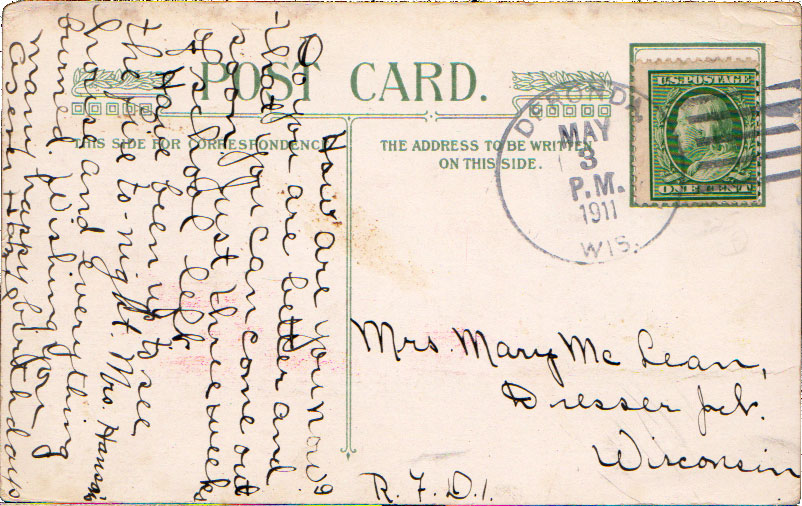 POST CARD.
THIS SIDE FOR CORRESPONDENCE
THE ADDRESS TO BE WRITTEN
ON THIS SIDE.
U.S. POSTAGE
ONE CENT
DERONDA,
MAY
3
P.M.
1911
WIS.
How are you now?
you are better and
that you can come out
soon. Just three weeks
of school left.
Have been up to see
the fire to-night. Mrs. Hanson's
house and everything
burned. Wishing you
many happy birthdays
Mrs. Mary Mc Lean,
Dresser Jct.
Wisconsin
R.F.D.1.